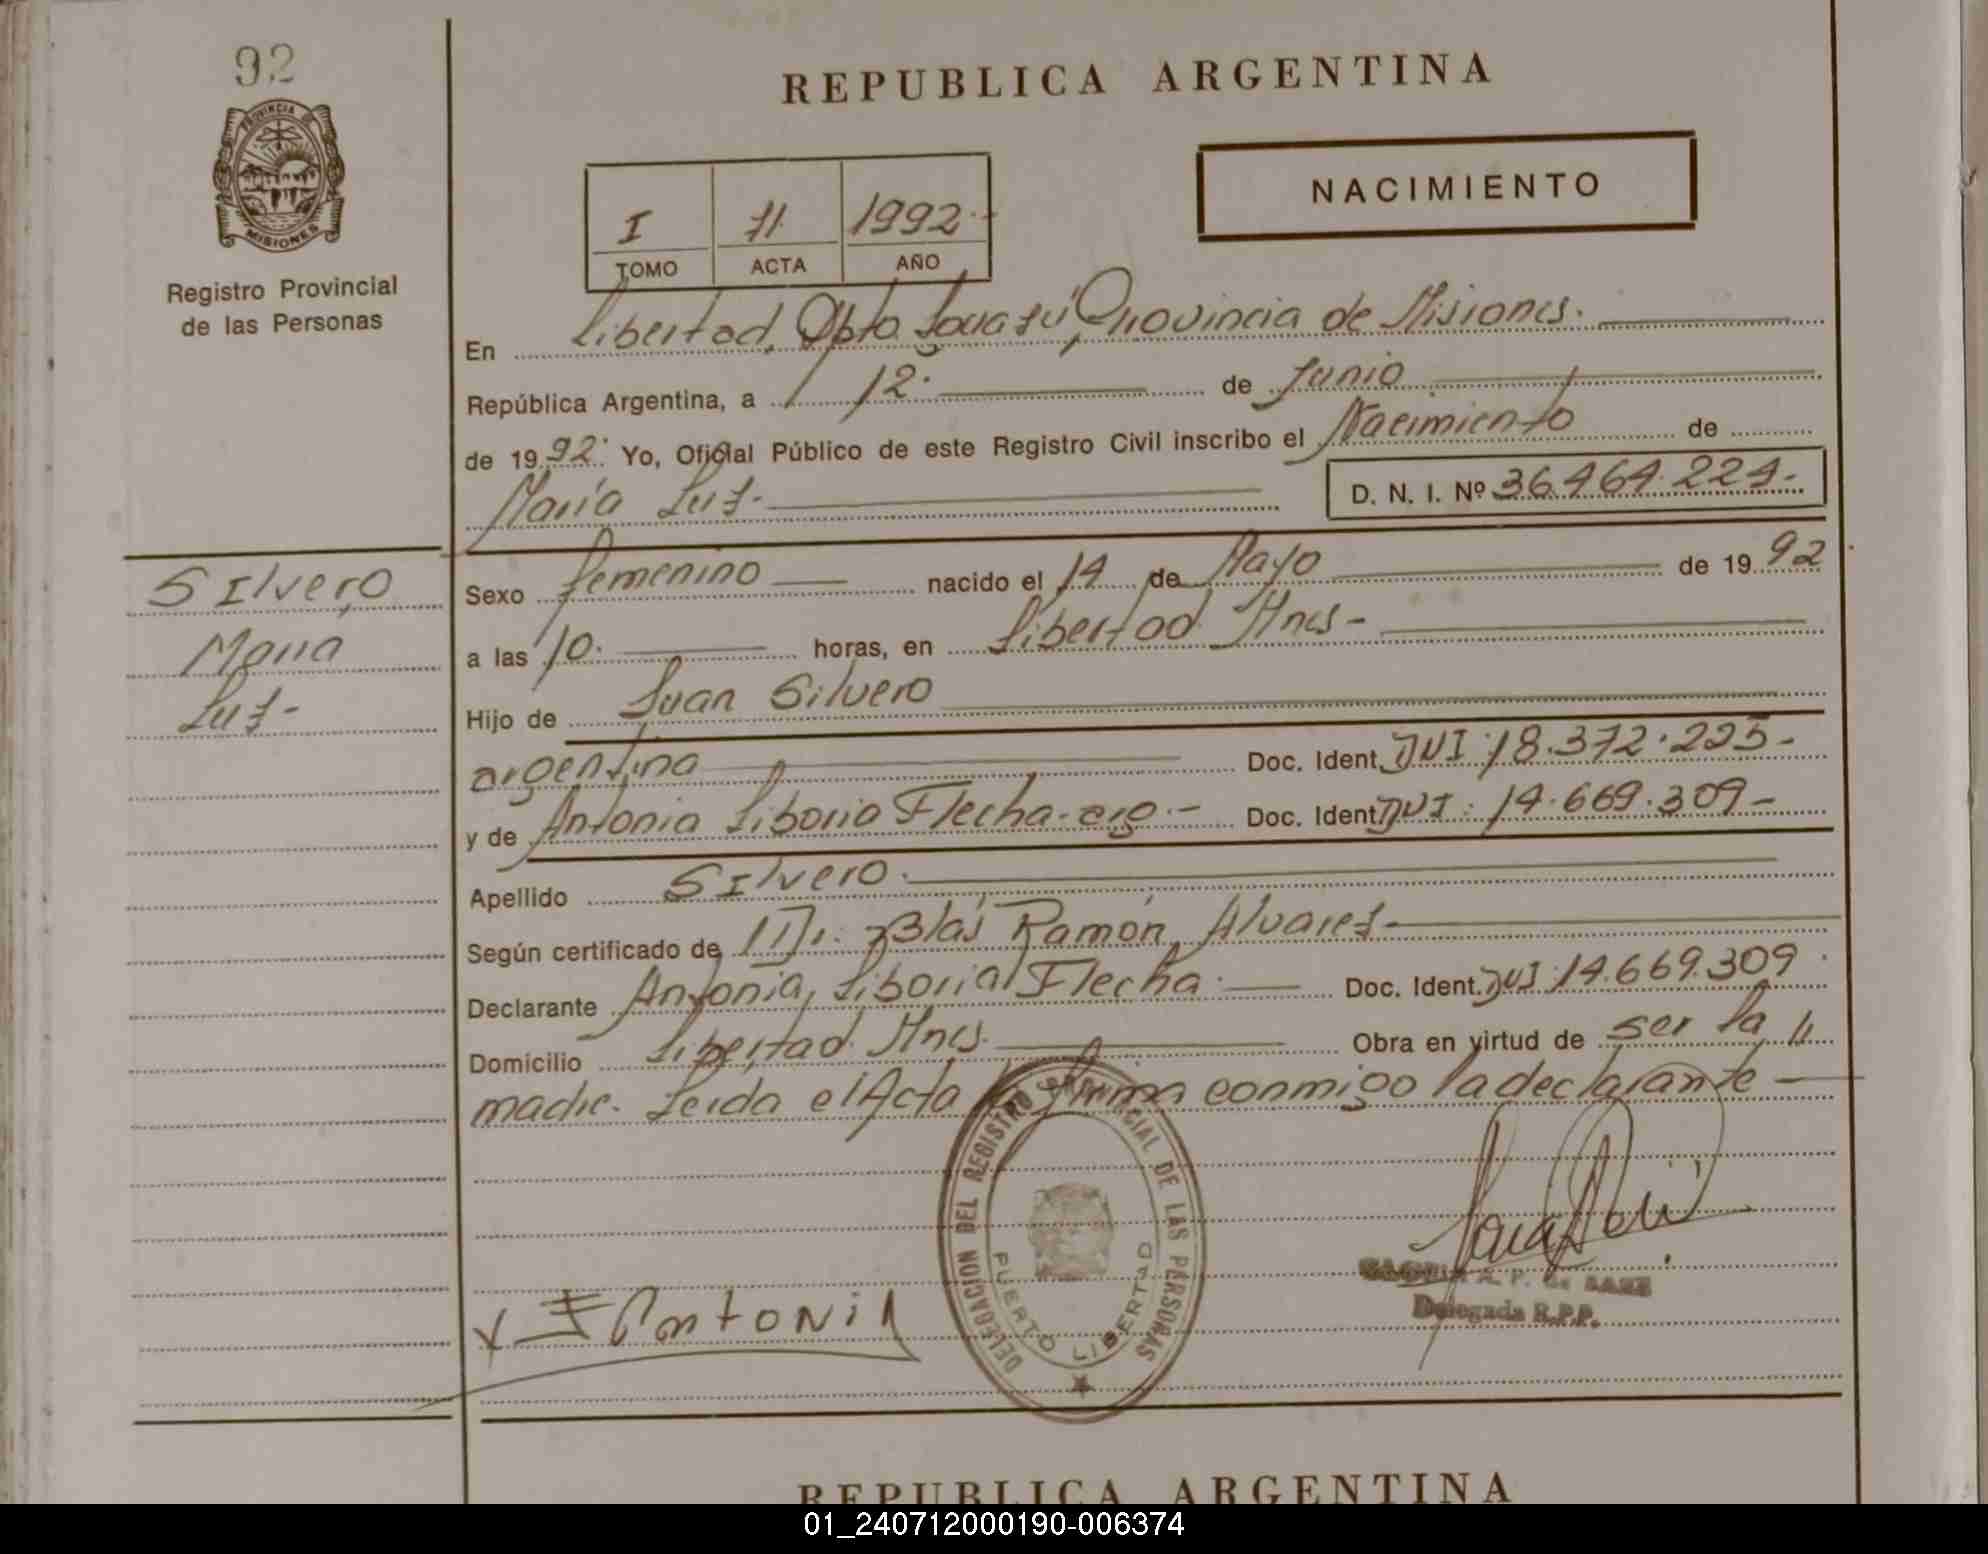 92
PROVINCIA DE
MISIONES
Registro Provincial
de las Personas
REPUBLICA ARGENTINA
NACIMIENTO
I 71. 1992.-
TOMO ACTA AÑO
En Libertad, Dpto Iguazú, Provincia de Misiones.
República Argentina, a 12. de Junio
de 1992. Yo, Oficial Público de este Registro Civil inscribo el Nacimiento de
María Luz.- D. N. I. Nº 36.464.224.-
Silvero
Maria
Luz-
Sexo femenino nacido el 14 de Mayo de 1992
a las 10. horas, en Libertad Mnes-
Hijo de Juan Silvero
argentina Doc. Ident. DNI: 18.372.225-
y de Antonia Liboria Flecha. arg.- Doc. Ident. DNI: 14.669.309-
Apellido Silvero.
Según certificado de Dr. Blás Ramón Alvarez-
Declarante Antonia Liboria Flecha. Doc. Ident. DNI: 14.669.309.
Domicilio Libertad. Mnes. Obra en virtud de ser la //
madre. Leida el Acta la firma conmigo la declarante
DELEGACION DEL REGISTRO PROVINCIAL DE LAS PERSONAS
PUERTO LIBERTAD
A. P. de
Delegada R.P.P.
x F Antonia
REPUBLICA ARGENTINA
01_240712000190-006374